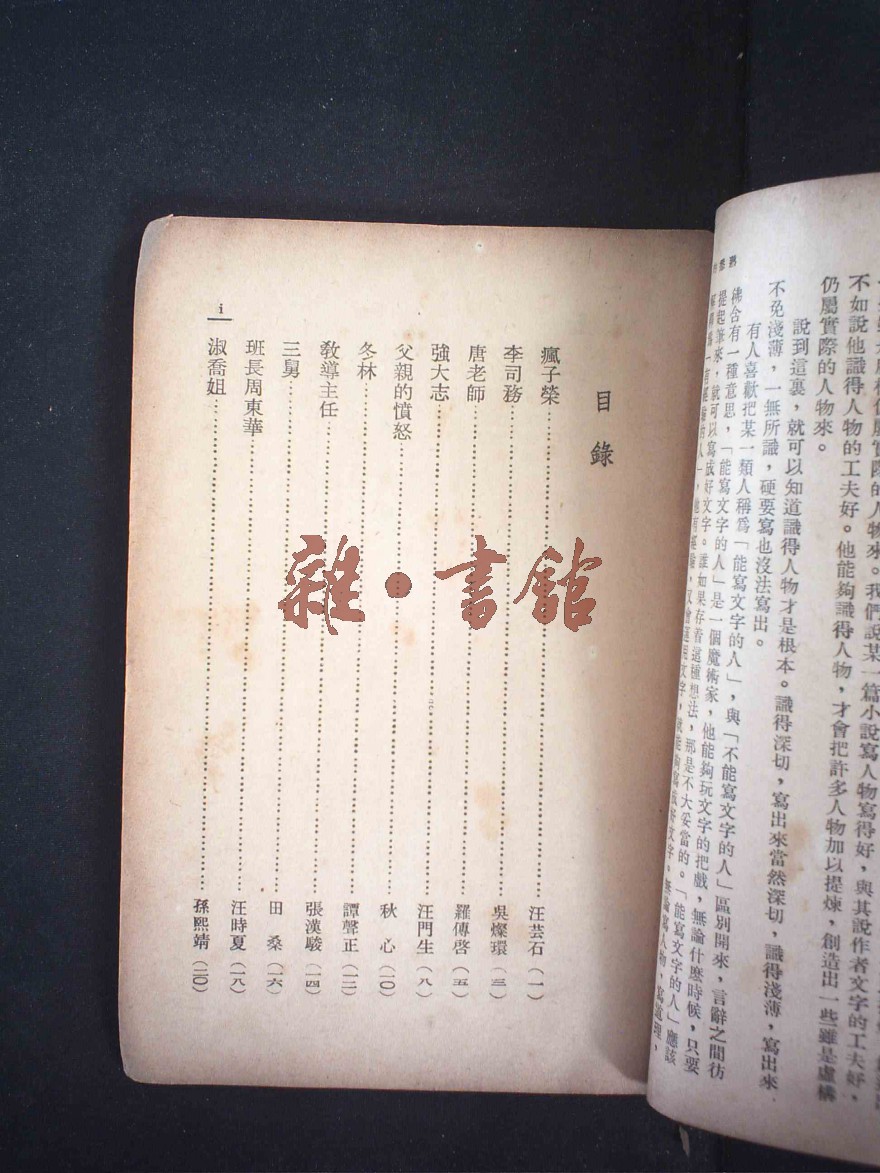 不如說他識得人物的工夫好。他能夠識得人物，才會把許多人物加以提煉，創造出一些雖是虛構
仍屬實際的人物來。
說到這裏，就可以知道識得人物才是根本。識得深切，寫出來當然深切，識得淺薄，寫出來
不免淺薄，一無所識，硬要寫也沒法寫出。
有人喜歡把某一類人稱爲「能寫文字的人」，與「不能寫文字的人」區別開來，言辭之間彷
彿含有一種意思，「能寫文字的人」是一個魔術家，他能夠玩文字的把戲，無論什麼時候，只要
提起筆來，就可以寫成好文字。誰如果存着這種想法，那是不大妥當的。「能寫文字的人」應該
目錄
瘋子榮 汪芸石（一）
李司務 吳燦環（三）
唐老師 羅傳啓（五）
強大志 汪門生（八）
父親的憤怒 秋心（一〇）
冬林 譚聲正（一二）
敎導主任 張漢駿（一四）
三舅 田桑（一六）
班長周東華 汪時夏（一八）
淑喬姐 孫熙靖（二〇）
i
雜·書館